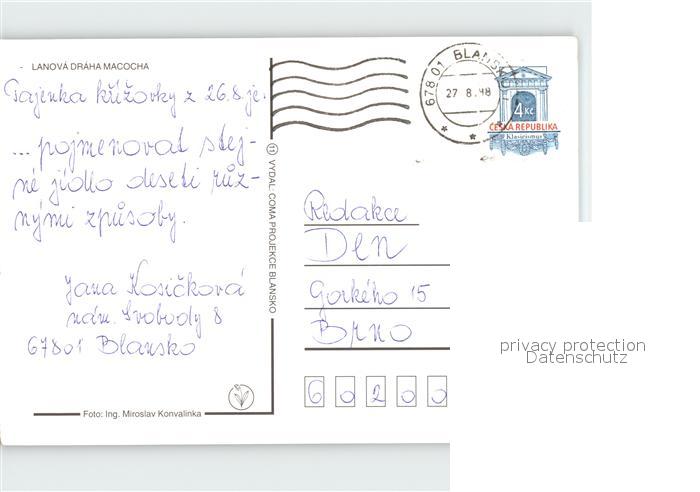 LANOVÁ DRÁHA MACOCHA
Tajenka křížovky z 26.8. je:
... pojmenovat stej-
né jídlo deseti růz-
nými způsoby.
Jana Kosičková
nám. Svobody 8
67801 Blansko
Foto: Ing. Miroslav Konvalinka
11 VYDAL: COMA PROJEKCE BLANSKO
678 01 BLANSKO
27 8. 98
4 Kč
ČESKÁ REPUBLIKA
Klasicismus
Redakce
Den
Gorkého 15
Brno
6 0 2 0 0
privacy protection
Datenschutz